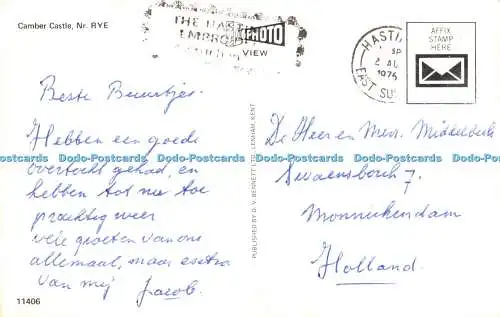 Camber Castle, Nr. RYE
THE HASTINGS
EMBROIDERY
PHOTO
VIEW
HASTINGS
2 AU
1975
EAST SU
AFFIX
STAMP
HERE
Beste Buurtjes.
Hebben een goede
overtocht gehad, en
hebben tot nu toe
prachtig weer
vele groeten van ons
allemaal, maar extra
van mij Jacob.
11406
PUBLISHED BY D. V. BENNETT LENHAM, KENT
De Heer en Mevr. Middelbeek
Swaensborch 7.
Monnickendam
Holland.
Dodo-Postcards Dodo-Postcards Dodo-Postcards Dodo-Postcards Dodo-Postcards Dodo-Postcards